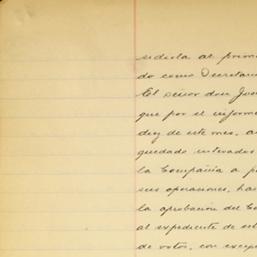 sidiola al prim
do como Secretari
El señor don Jua
que por el informe
diez de este mes, a
quedado enterados
la Compañía a p
sus operaciones, ha
la aprobación del Co
al expediente de se
de votos, con excep